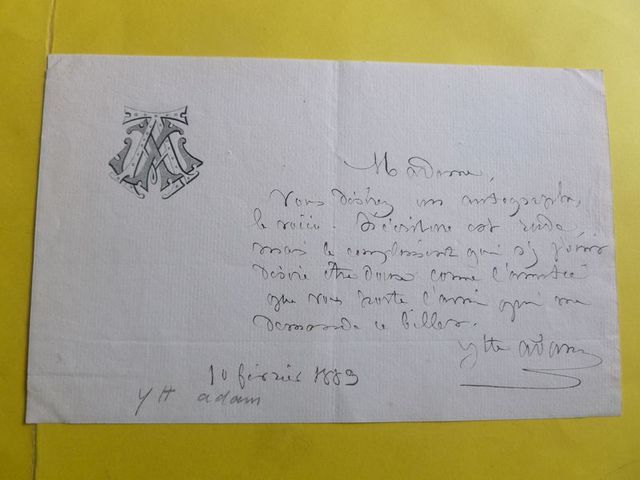 Madame,
Vous désirez un autographe,
le voici. L'écriture est rude,
mais le compliment qui s'y joint
désire être doux comme l'amitié
que vous porte l'ami qui me
demande ce billet.
Ytte adam
10 février 1889
y H adam